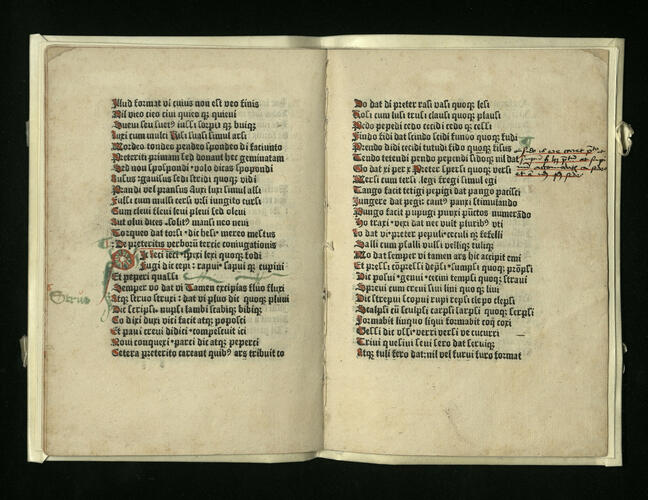 Illud format vi cuius non est veo finis
Nil vico cico civi quico qz quieui
Sueui seu suetus iussi sorpsi qz
Iuxi cum mulsi Risi suasi simul arsi
Mordeo tondeo pendeo spondeo di faciunto
Preteriti primam sed donant hec geminatam
Sed non spospondi polo dicas spopondi
Ausus gauisus sed stridi quoqz vidi
Prandi vel pransus Auxi luxi simul alsi
Fulsi cum mulsi tersi vrsi iungito cursi
Cum cleui fleui leui pleui sed oleui
Aut olui dices solitus mansi neo neui
Torqueo dat torsi dic hesi mereo mestus
De preteritis verborum tercie coniugationis
Ic ieci ieci spexi lexi quoqz fodi
Fugi dic cepi rapui sapui qz cupiui
Et peperi quassi
Semper vo dat vi Tamen excipias fluo fluxi
Struo
Atqz struo struxi dat vi pluo dic quoqz pluui
Dic scripsi nupsi lambi scabiqz bibiqz
Co dixi duxi vici facit atqz poposci
Et paui creui didici compescuit ici
Noui conquexi parci dic atqz peperci
Cetera preterito careant quibus ars tribuit co
Do dat di preter rasi vasi quoqz lesi
Rosi cum lusi trusi clausi quoqz plausi
Pedo pepedi cedo cecidi cedo qz cessi
Findo fidi dat scindo scidi fundo quoqz fudi
Prendo didi cecidi tutudi fido quoqz fisus
Tendo tetendi pendo pependi sidoqz nil dat
Go dat xi per x Preter spersi quoqz versi
Mersi cum tersi legi fregi simul egi
Tango facit tetigi pepigi dat pango pacisci
Iungere dat pegi cantus panxi stimulando
Pango facit pupugi punxi punctos numerando
Ho traxi vexi dat nec vult pluribus vti
Lo dat vi preter pepuli ceculi qz fefelli
Salli cum psalli vulsi velliqz tuliqz
Mo dat semper vi tamen ars hic accipit emi
Et pressi compressi depsi sumpsi quoqz prompsi
Dic posui genui cecini tempsi quoqz straui
Spreui cum creui siui lini quoqz liui
Dic strepui scopui rupi repsi clepo clepsi
Scalpsi cum sculpsi carpsi sarpsi quoqz serpsi
Formabit linquo liqui formabit coqz coxi
Gessi dic vssi verri versi ve cucurri
Triui quesiui seui sero dat seruiqz
Atqz tuli fero dat nil vel furui furo format